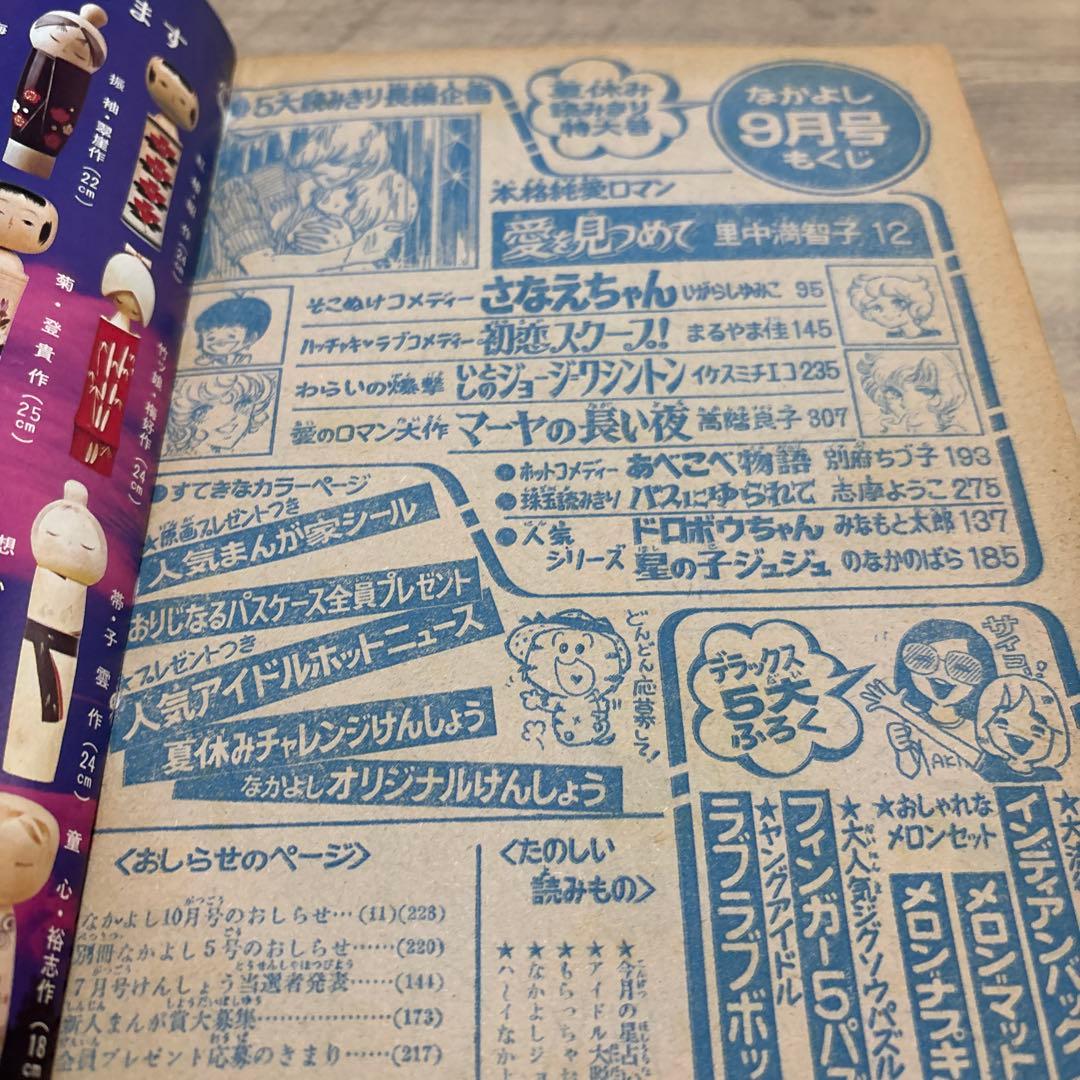 ます
振袖・翠崖作(22cm)
菊・登貴作(25cm)
帯・子雲作(24cm)
童心・裕志作(18cm
想
5大読みきり長編企画
夏休み
読みきり
特大号
なかよし
9月号
もくじ
本格純愛ロマン
愛を見つめて 里中満智子 12
そこぬけコメディー さなえちゃん いがらしゆみこ 95
ハッチャキ♥ラブコメディー 初恋スクープ! まるやま佳 145
わらいの爆撃 いとしのジョージ=ワシントン イケスミチエコ 235
愛のロマン大作 マーヤの長い夜 高階良子 307
●ホットコメディー あべこべ物語 別府ちづ子 193
●珠玉読みきり バスにゆられて 志摩ようこ 275
●人気シリーズ ドロボウちゃん みなもと太郎 137
星の子ジュジュ のなかのばら 185
●すてきなカラーページ
★原画プレゼントつき
人気まんが家シール
おりじなるパスケース全員プレゼント
★プレゼントつき
人気アイドルホットニュース
夏休みチャレンジけんしょう
なかよしオリジナルけんしょう
どんどん応募して!
デラックス
5大
ふろく
サイコ!
AKI
インディアンバッグ
★おしゃれな
メロンセット
メロンマット
メロンナプキ
★大人気ジグソウパズル
フィンガー5パズ
★ヤングアイドル
ラブラブボッ
<おしらせのページ>
なかよし10月号のおしらせ…(11)(228)
別冊なかよし5号のおしらせ……(220)
7月号けんしょう当選者発表……(144)
新人まんが賞大募集………………(173)
全員プレゼント応募のきまり……(217)
<たのしい
読みもの>
★今月の星占い
★アイドル大
★もらっちゃお
★なかよしジョ
★ハーイなか